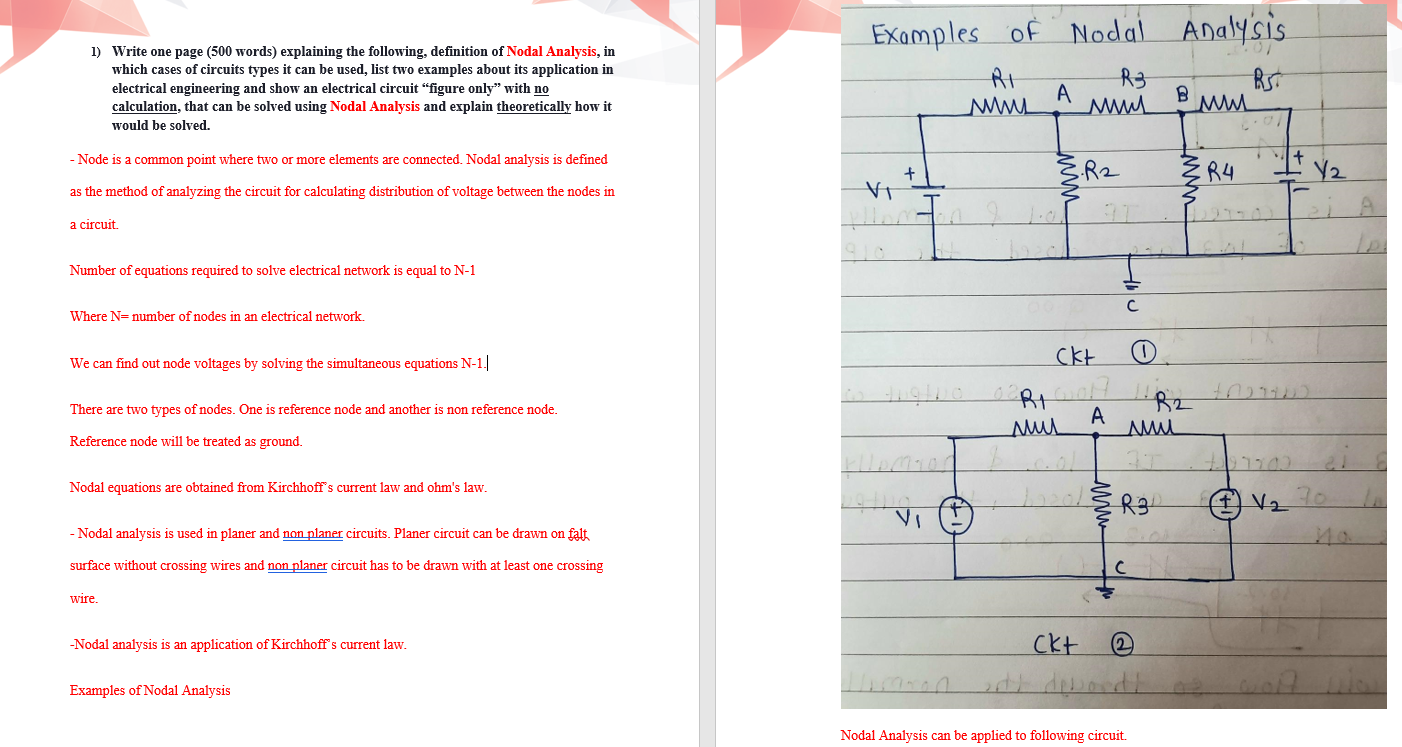 1) Write one page (500 words) explaining the following, definition of Nodal Analysis, in
which cases of circuits types it can be used, list two examples about its application in
electrical engineering and show an electrical circuit “figure only” with no
calculation, that can be solved using Nodal Analysis and explain theoretically how it
would be solved.
- Node is a common point where two or more elements are connected. Nodal analysis is defined
as the method of analyzing the circuit for calculating distribution of voltage between the nodes in
a circuit.
Number of equations required to solve electrical network is equal to N-1
Where N= number of nodes in an electrical network.
We can find out node voltages by solving the simultaneous equations N-1.
There are two types of nodes. One is reference node and another is non reference node.
Reference node will be treated as ground.
Nodal equations are obtained from Kirchhoff's current law and ohm's law.
- Nodal analysis is used in planer and non planer circuits. Planer circuit can be drawn on falt
surface without crossing wires and non planer circuit has to be drawn with at least one crossing
wire.
-Nodal analysis is an application of Kirchhoff's current law.
Examples of Nodal Analysis
Examples of Nodal Analysis
R1 A R3 B R5
V1 + R2 R4 + V2
C
Ckt 1
R1 A R2
V1 + R3 + V2
C
Ckt 2
Nodal Analysis can be applied to following circuit.